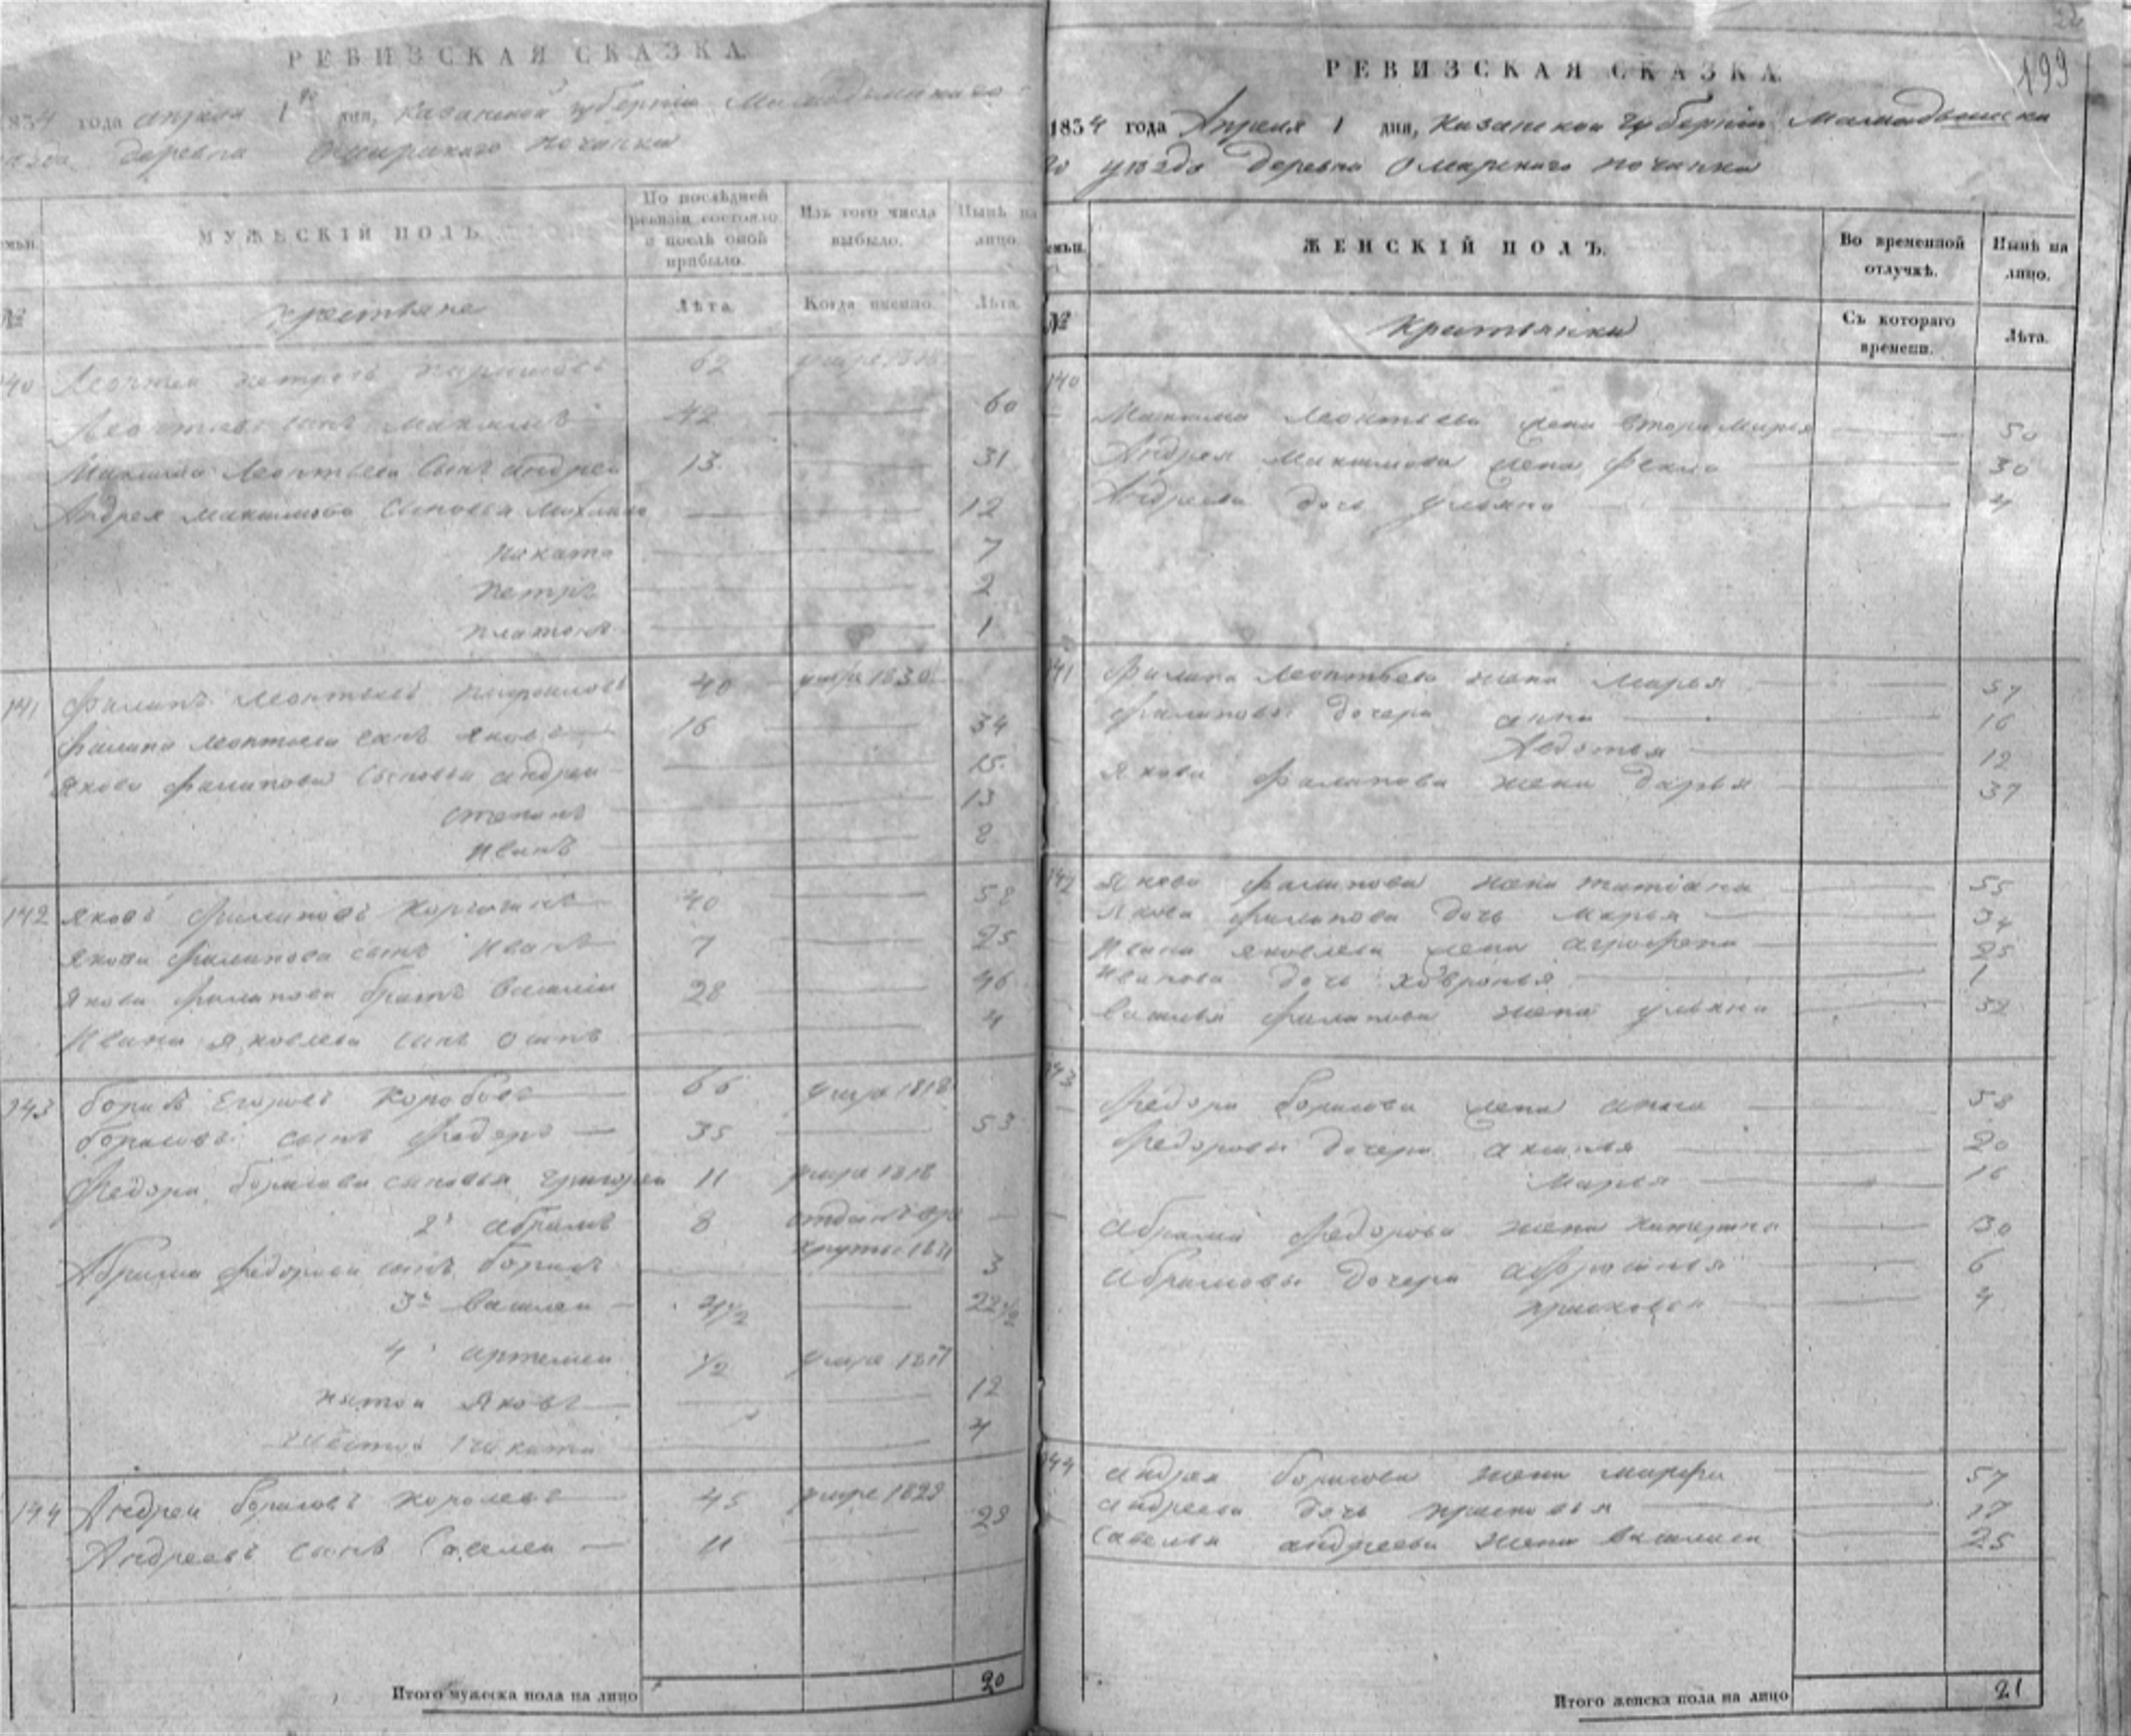 РЕВИЗСКАЯ СКАЗКА
1834 года апреля 1го дня, Казанской губернии Мамадышскаго
уезда деревна Омарского починка
мьи.
МУЖЕСКІЙ ПОЛЪ.
По послѣдней ревизіи состояло и послѣ оной прибыло.
Изъ того числа выбыло.
Нынѣ на лицо.
№
крестьяне
Лѣта.
Когда именно.
Лѣта.
140 Леонтеи петровъ 62 умре
Леонтьевъ сынъ максимъ 42 60
Максима Леонтьева сынъ андреи 13 31
Андрея максимова сыновья 12
никита 7
петръ 2
платонъ 1
141 Филипъ леонтьевъ 40 умре 1830
Филипа леонтьева сынъ яковъ 16 34
якова филипова сыновья андреи 15
степанъ 13
иванъ 8
142 яковъ филиповъ 40 58
якова филипова сынъ иванъ 7 25
якова филипова братъ василеи 28 46
ивана яковлева сынъ осипъ 4
143 борисъ егоровъ коробовъ 66 умре 1818
борисовъ сынъ федоръ 35 53
федора борисова сыновья григореи 11 умре 1818
2й абрамъ 8 отданъ
Абрама федорова сынъ борисъ 3
3й василеи 4 1/2 22 1/2
4й артемеи 1/2 умре
пятои яковъ 12
шестои никита 4
144 Андреи борисовъ 45 умре 1828
Андреевъ сынъ савелеи 11 29
Итого мужеска пола на лицо 20
199
РЕВИЗСКАЯ СКАЗКА.
1834 года Апреля 1 дня, казанской губерніи Мамадышска
го уезда деревна Омарскаго починка
мьи.
ЖЕНСКІЙ ПОЛЪ.
Во временной отлучкѣ.
Нынѣ на лицо.
№
крестьянки
Съ котораго времени.
Лѣта.
140
Максима леонтьева жена втора марья 50
Андрея максимова жена фекла 30
Андреева дочь ульяна 4
141 филипа леонтьева жена марья 57
филиповы дочери анна 16
Авдотья 12
якова филипова жена дарья 37
142 якова филипова жена татіана 55
якова филипова дочь марья 34
ивана яковлева жена агрофена 25
иванова дочь ховронья 1
василья филипова жена ульяна 52
143
федора борисова жена 58
федоровы дочери аксинья 20
марья 16
абрама федорова жена катерина 30
абрамовы дочери афросинья 6
4
144 андрея борисова жена марфа 57
андреева дочь прасковья 17
савелья андреева жена василиса 25
Итого женска пола на лицо 21